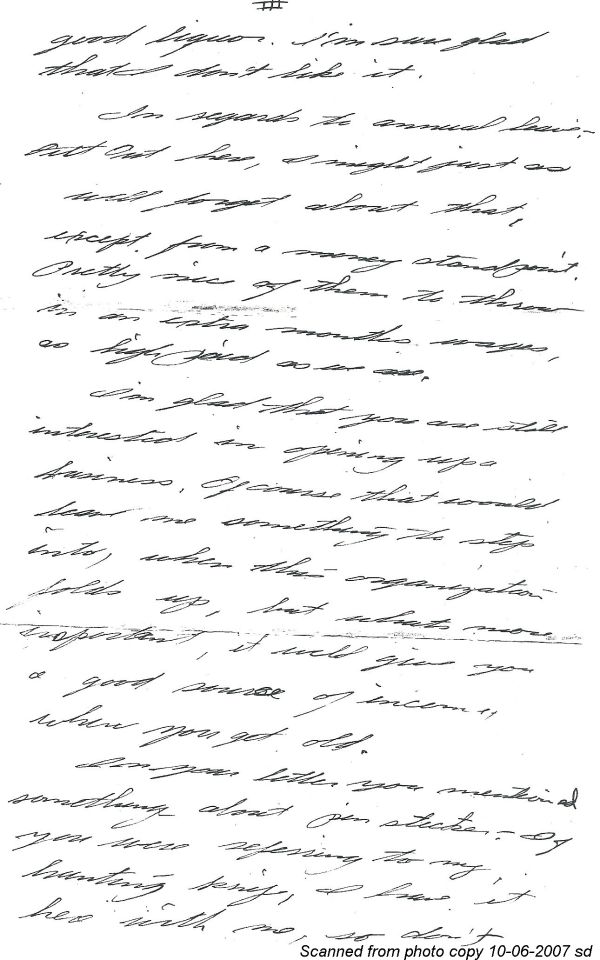 III
good liquor. I'm sure glad
that I don't like it.
In regards to annual leave-
out here, I might just as
well forget about that,
except from a money standpoint.
Pretty nice of them to throw
in an extra months wages,
as high paid as we are.
I'm glad that you are still
interested in opening up a
business. Of course that would
leave me something to step
into, when this organization
folds up, but whats more
important, it would give you
a good source of income
when you get old.
In your letter you mentioned
something about - If
you were refering to my
hunting knife, I have it
here with me, so don't
Scanned from photo copy 10-06-2007 sd